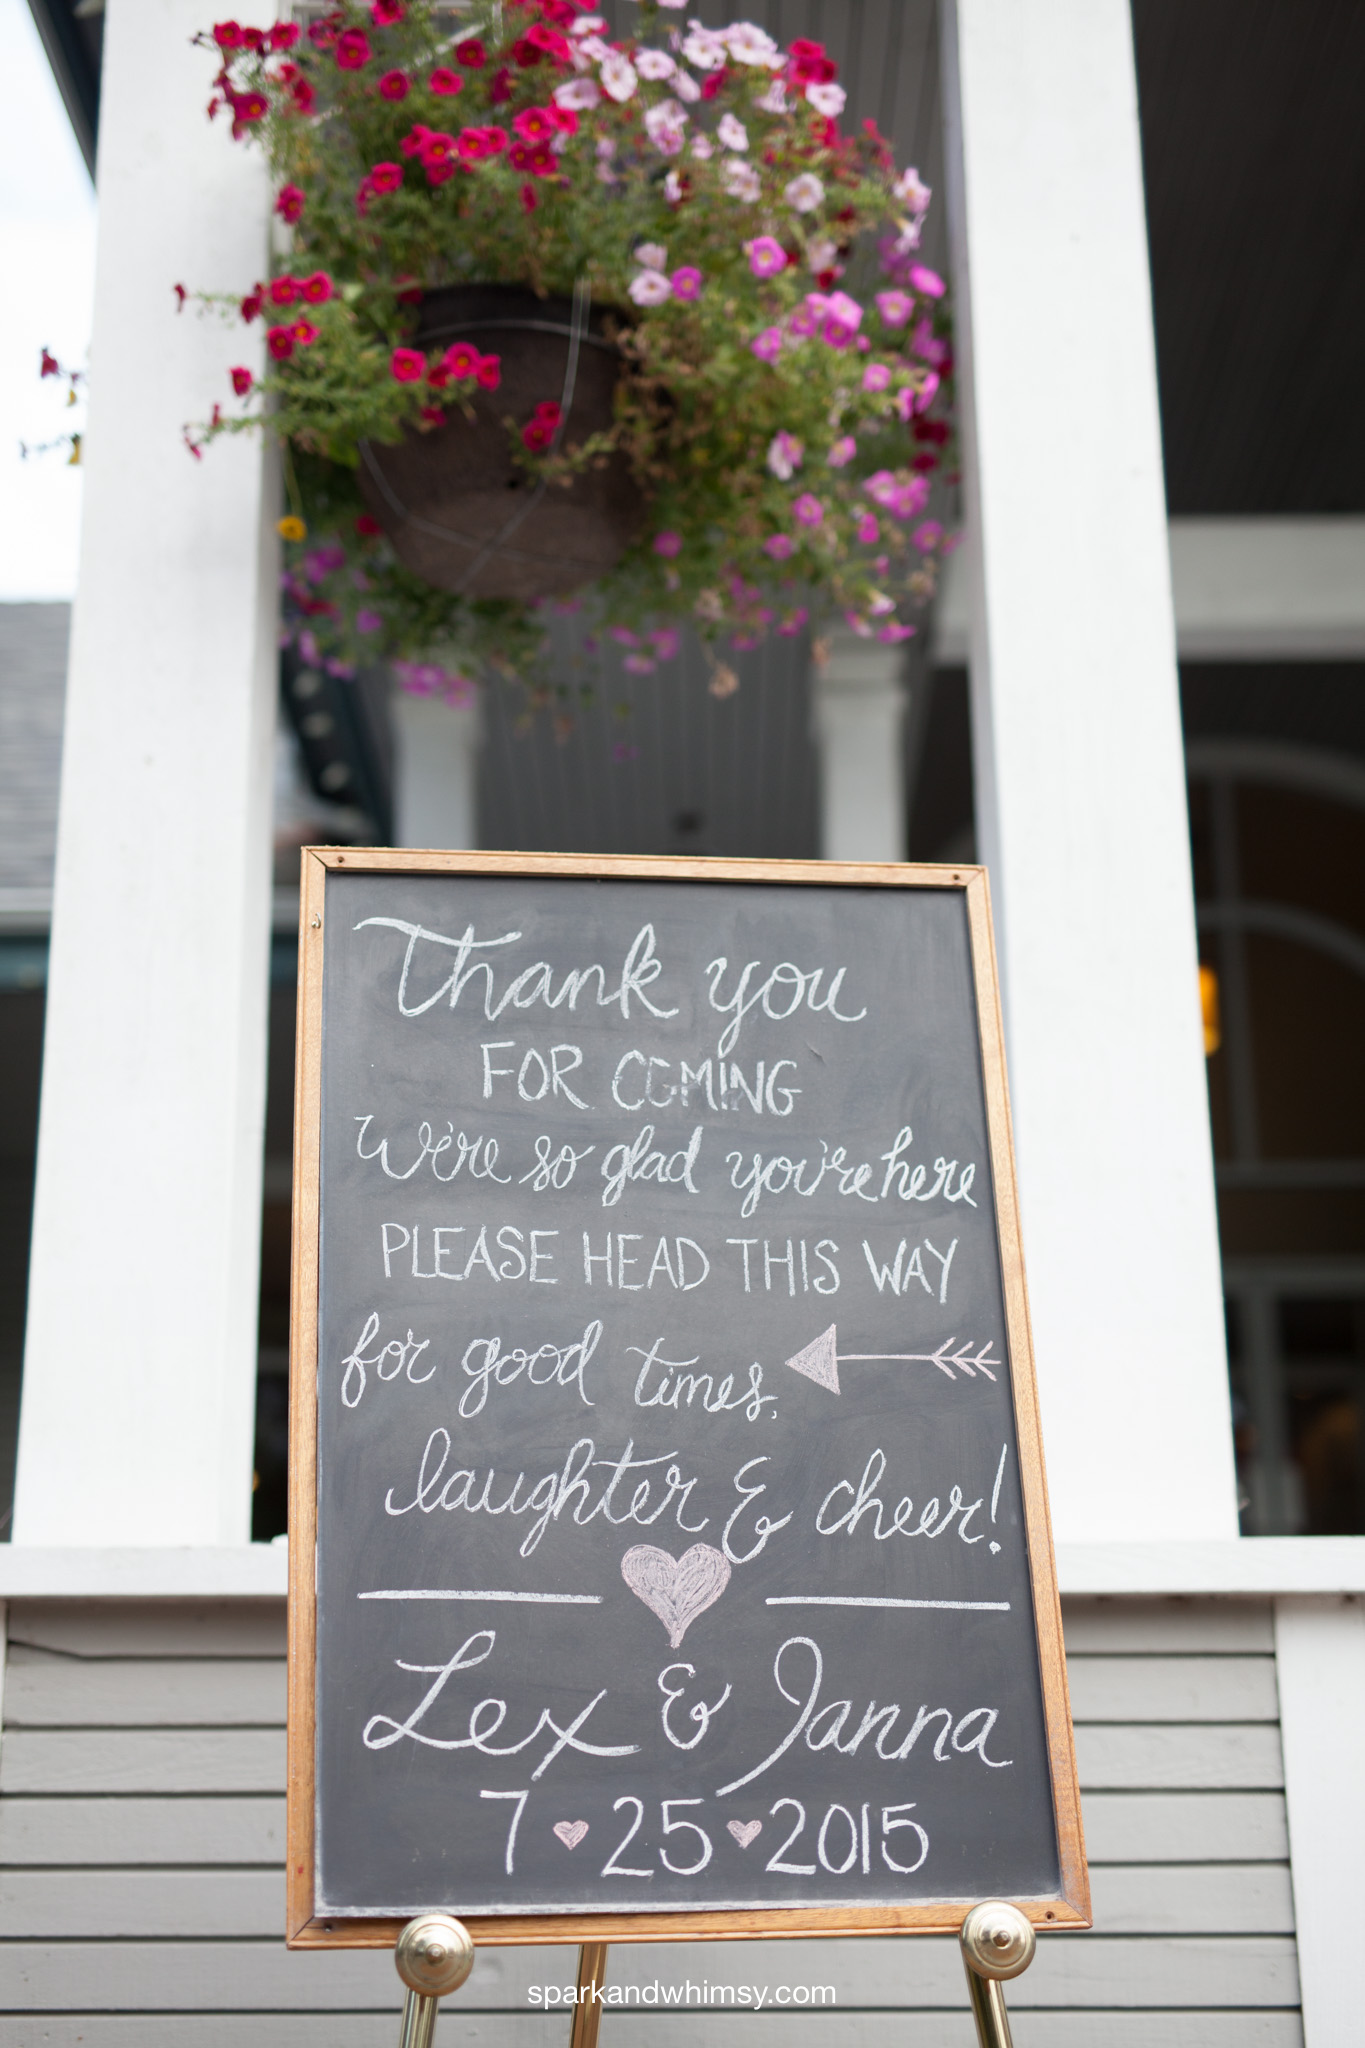 Thank you
FOR COMING
We're so glad you're here
PLEASE HEAD THIS WAY
for good times,
laughter & cheer!
Lex & Janna
7 ♥ 25 ♥ 2015
sparkandwhimsy.com